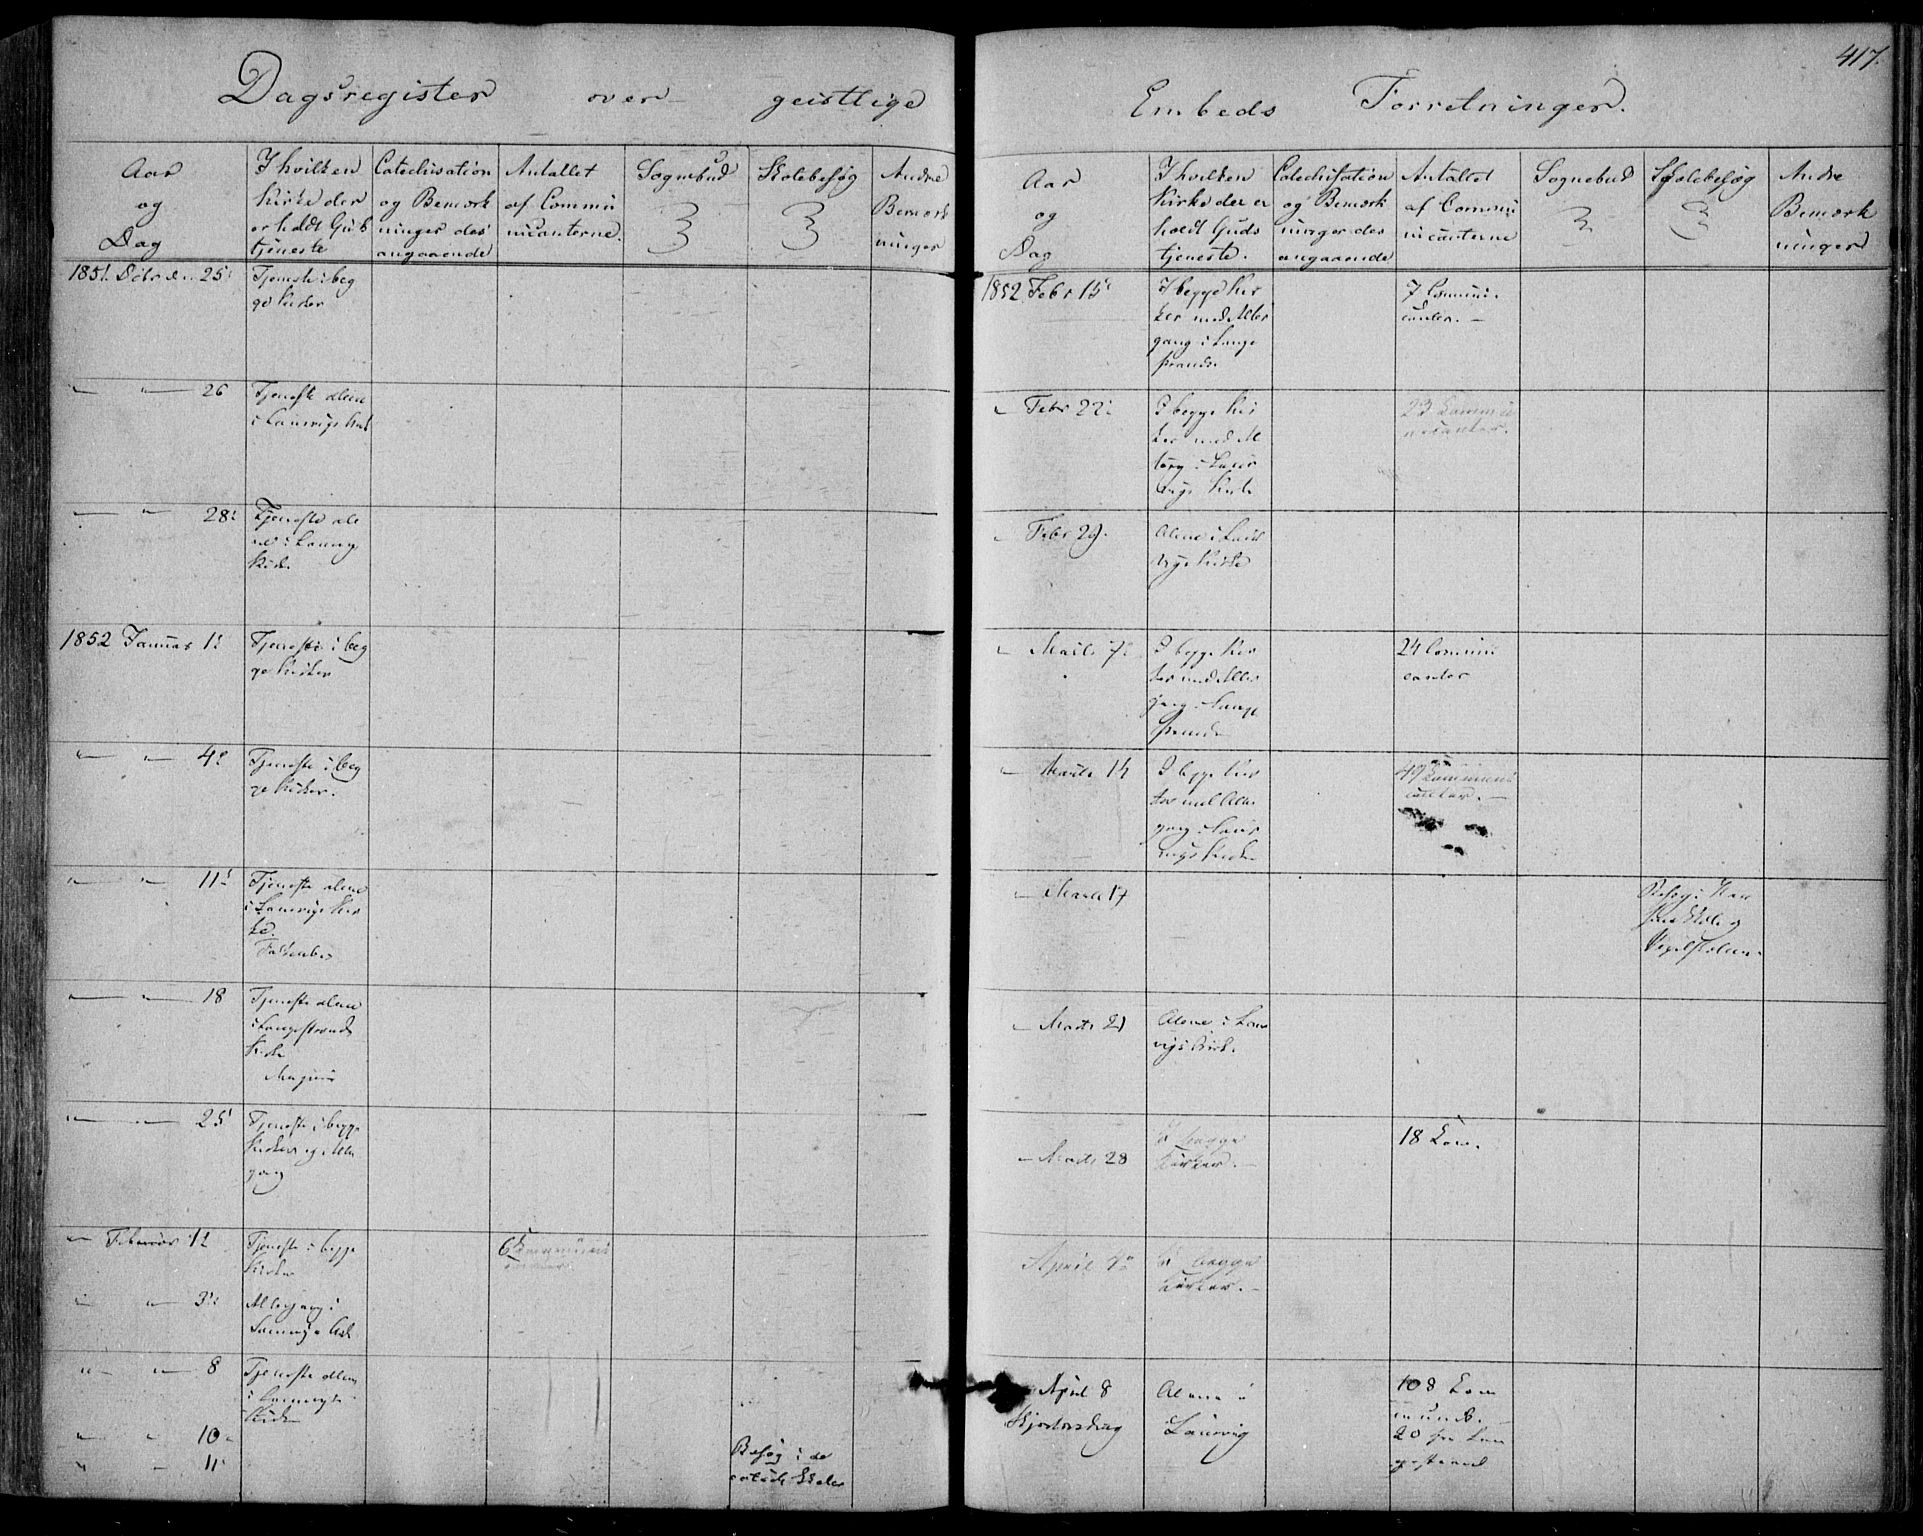 417.
Dagsregister over geistlige
Aar og Dag
I hvilken Kirke der er holdt Guds tjeneste
Catechisation og Bemærk ninger des angaaende
Antallet af Commu nicanterne.
Sognebud
Skolebesøg
Andre Bemærk ninger
1851. Dcbr den 25
Tjeneste i beg
ge Kirker
26
Tjeneste alene
i Laurvigs Kirk
28
Tjeneste ale
ne i Laurvig
Kirke.
1852 Januar 1
Tjeneste i beg
ge Kirker
4
Tjeneste i beg
ge Kirker.
11
Tjeneste alene
i Laurvigs Kir
ke.
18
Tjeneste alene
i Langestrands
Kirke
25
Tjeneste i begge
Kirker og Alter
gang
Februar 1
Tjeneste i begge
Kirker
6 Communi
canter
3
Altergang i
Laurvigs Kirk
8
Tjeneste alene
i Laurvigs
Kirke
10
11
Besøg i de
Skoler
Embeds Forretninger.
Aar og Dag
I hvilken Kirke der er holdt Guds tjeneste.
Catechisation og Bemærk ninger des angaaende
Antallet af Commu nicanterne
Sognebud
Skolebesøg
Andre Bemærk ninger
1852 Febr 15
I begge Kir
ker med Alter
gang i Lange
strands.
7 Communi
canter.
Febr 22
I begge Kir
ker med Al
terg i Laur
vigs Kirke
23 Commu
nicanter.
Febr 29.
Alene i Laur
vigs Kirke
Marts 7
I begge Kir
ker med Alter
gang i Lange
strands
24 Communi
canter
Marts 14
I begge Kir
ker med Alter
gang i Laur
vigs Kirke
49 Communi
canter.
Marts 17
Besøg i
Marts 21
Alene i Laur
vigs Kirk.
Marts 28
I begge
Kirker.
18 Com.
April 4
I begge
Kirker.
April 8
Skjertorsdag
Alene i
Laurvig
108 Com
munic.
20 fra Lan
gestrand